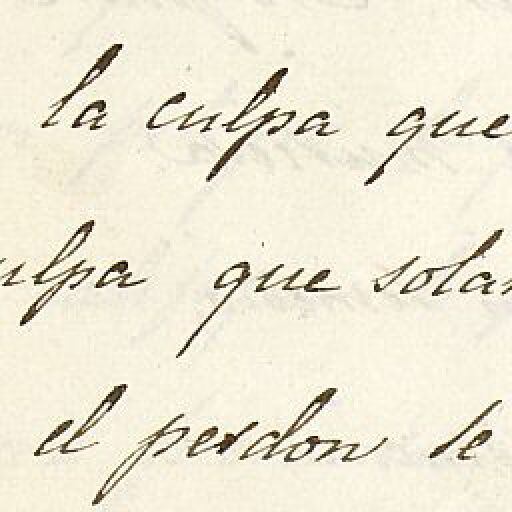 la culpa que
ulpa que solam
el perdon de